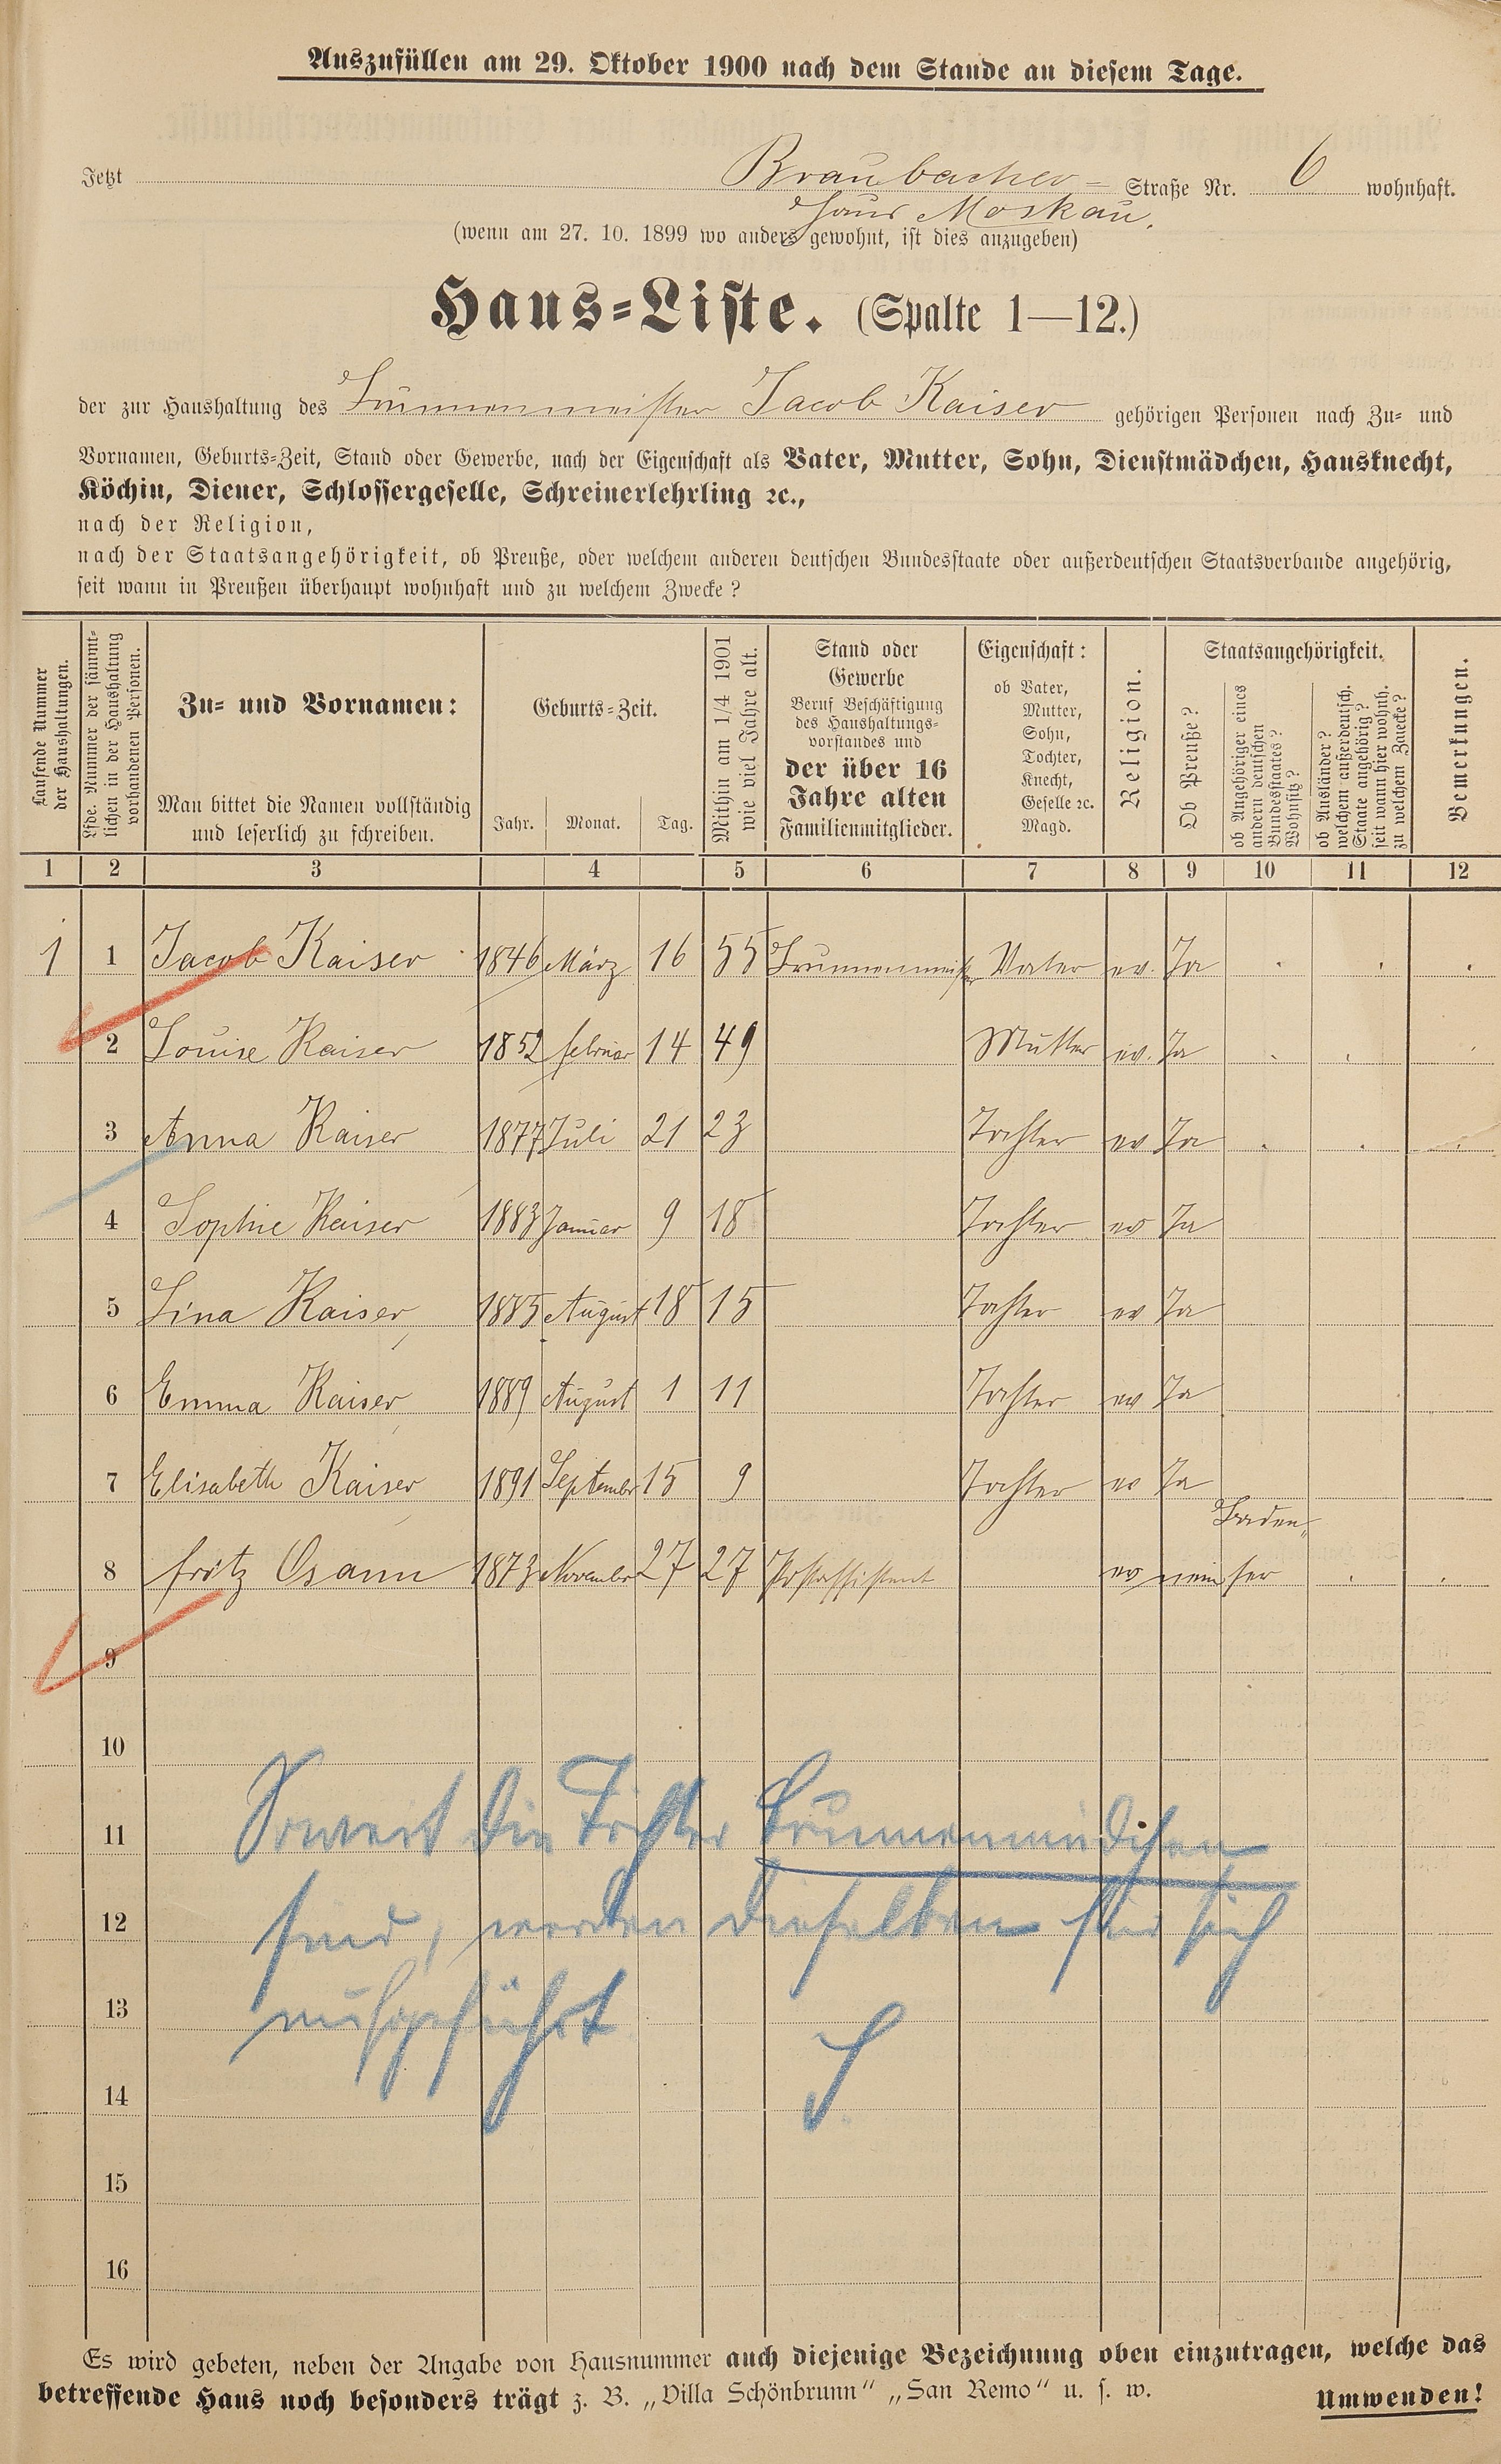 Auszufüllen am 29. Oktober 1900 nach dem Stande an diesem Tage.
Jetzt Braubacher- Straße Nr. 6 wohnhaft.
Haus Moskau.
(wenn am 27. 10. 1899 wo anders gewohnt, ist dies anzugeben)
Haus-Liste. (Spalte 1—12.)
der zur Haushaltung des Brunnenmeister Jacob Kaiser gehörigen Personen nach Zu- und
Vornamen, Geburts-Zeit, Stand oder Gewerbe, nach der Eigenschaft als Vater, Mutter, Sohn, Dienstmädchen, Hausknecht,
Köchin, Diener, Schlossergeselle, Schreinerlehrling ꝛc.,
nach der Religion,
nach der Staatsangehörigkeit, ob Preuße, oder welchem anderen deutschen Bundesstaate oder außerdeutschen Staatsverbande angehörig,
seit wann in Preußen überhaupt wohnhaft und zu welchem Zwecke?
Laufende Nummer
der Haushaltungen.
Lfde. Nummer der sämmt-
lichen in der Haushaltung
vorhandenen Personen.
Zu- und Vornamen:
Man bittet die Namen vollständig
und leserlich zu schreiben.
Geburts-Zeit.
Jahr. Monat. Tag.
Mithin am 1/4 1901
wie viel Jahre alt.
Stand oder
Gewerbe
Beruf Beschäftigung
des Haushaltungs-
vorstandes und
der über 16
Jahre alten
Familienmitglieder.
Eigenschaft:
ob Vater,
Mutter,
Sohn,
Tochter,
Knecht,
Geselle ꝛc.
Magd.
Religion.
Staatsangehörigkeit.
Ob Preuße?
ob Angehöriger eines
andern deutschen
Bundesstaates?
Wohnsitz?
ob Ausländer?
welchem außerdeutsch.
Staate angehörig?
seit wann hier wohnh.
zu welchem Zwecke?
Bemerkungen.
1 2 3 4 5 6 7 8 9 10 11 12
1 1 Jacob Kaiser 1846 März 16 55 Brunnenmeister Vater ev. Ja
2 Louise Kaiser 1852 februar 14 49 Mutter ev. Ja
3 Anna Kaiser 1877 Juli 21 23 Tochter ev Ja
4 Sophie Kaiser 1883 Januar 9 18 Tochter ev Ja
5 Lina Kaiser 1885 August 18 15 Tochter ev Ja
6 Emma Kaiser 1889 August 1 11 Tochter ev Ja
7 Elisabeth Kaiser 1891 September 15 9 Tochter ev Ja
8 fritz Osann 1873 November 27 27 Postassistent ev nein Baden-
ser
9
10
11 Soweit die Töchter Brunnenmädchen
12 sind, werden dieselben für sich
13 aufgeführt
14
15
16
Es wird gebeten, neben der Angabe von Hausnummer auch diejenige Bezeichnung oben einzutragen, welche das
betreffende Haus noch besonders trägt z. B. „Villa Schönbrunn“ „San Remo“ u. s. w. Umwenden!